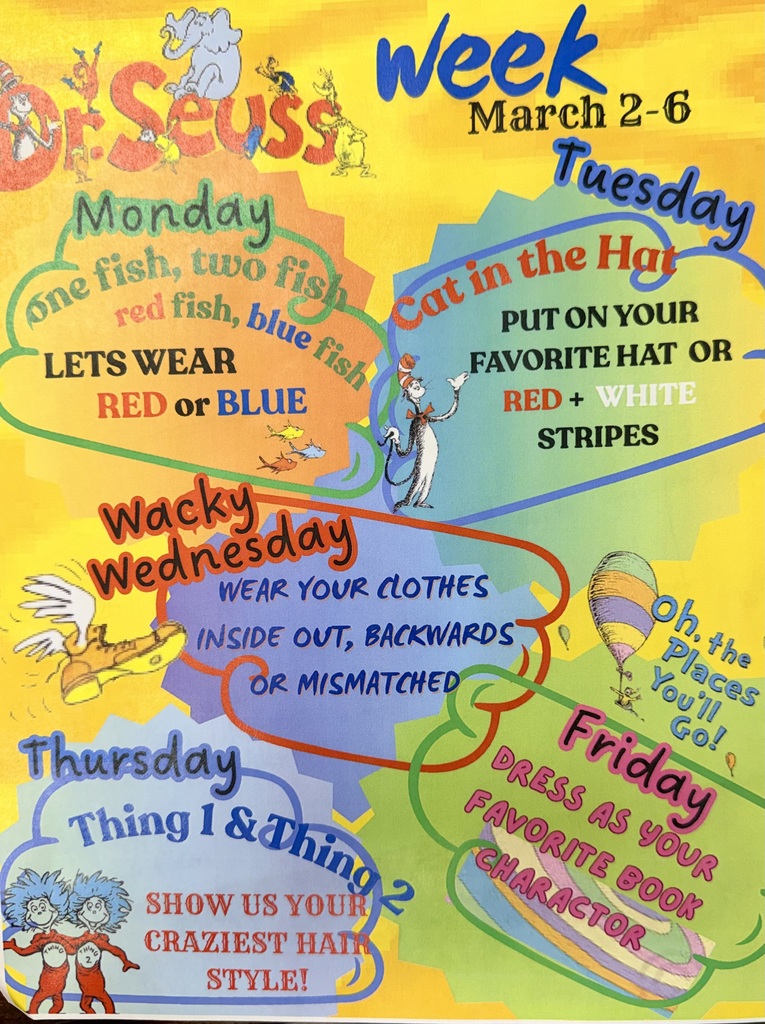 Dr. Seuss
Week
March 2-6
Monday
one fish, two fish
red fish, blue fish
LETS WEAR
RED or BLUE
Tuesday
Cat in the Hat
PUT ON YOUR
FAVORITE HAT OR
RED + WHITE
STRIPES
Wacky
Wednesday
WEAR YOUR CLOTHES
INSIDE OUT, BACKWARDS
OR MISMATCHED
Oh, the
Places
You'll
Go!
Thursday
Thing 1 & Thing 2
SHOW US YOUR
CRAZIEST HAIR
STYLE!
THING
THING
2
Friday
DRESS AS YOUR
FAVORITE BOOK
CHARACTOR